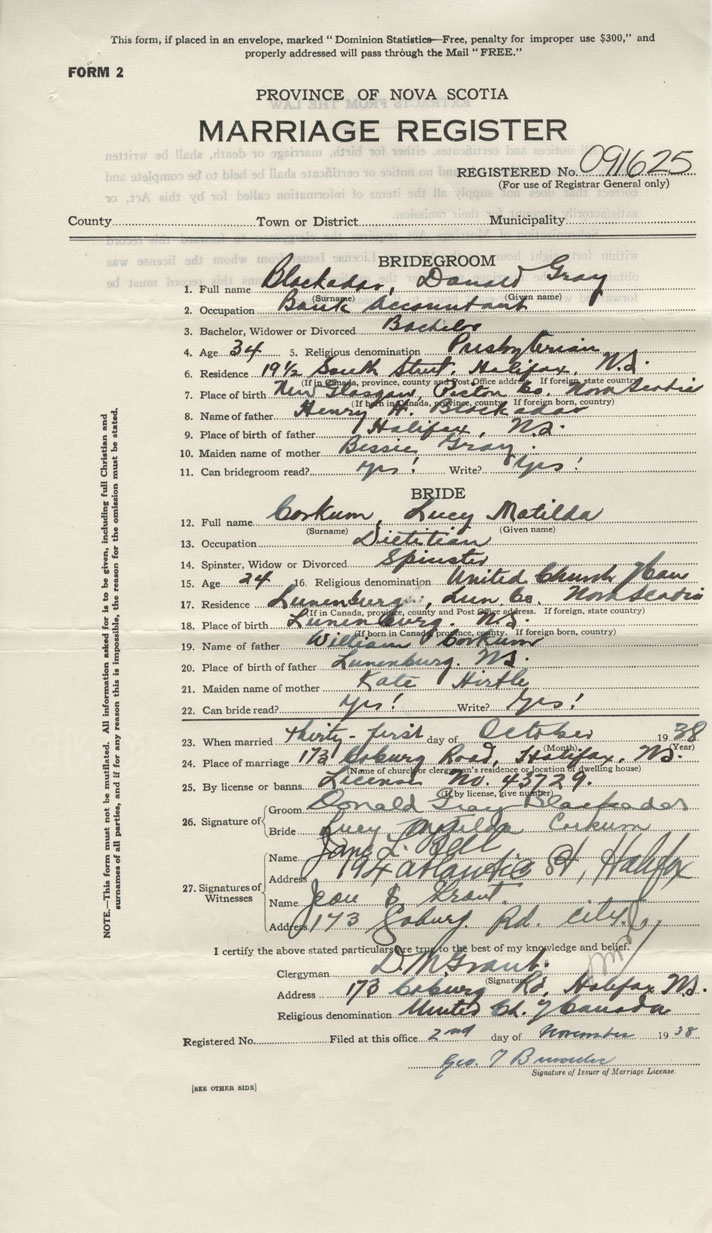 This form, if placed in an envelope, marked "Dominion Statistics—Free, penalty for improper use $300," and
properly addressed will pass through the Mail "FREE."
FORM 2
PROVINCE OF NOVA SCOTIA
MARRIAGE REGISTER
REGISTERED No. 091625
(For use of Registrar General only)
County Town or District Municipality
BRIDEGROOM
1. Full name Blackadar, Donald Gray
(Surname) (Given name)
2. Occupation Bank Accountant
3. Bachelor, Widower or Divorced Bachelor
4. Age 34 5. Religious denomination Presbyterian
6. Residence 19½ South Street, Halifax, N.S.
(If in Canada, province, county and Post Office address. If foreign, state country)
7. Place of birth New Glasgow, Pictou Co. Nova Scotia
(If born in Canada, province, county. If foreign born, country)
8. Name of father Henry H. Blackadar
9. Place of birth of father Halifax, N.S.
10. Maiden name of mother Bessie Gray.
11. Can bridegroom read? Yes! Write? Yes!
BRIDE
12. Full name Corkum, Lucy Matilda
(Surname) (Given name)
13. Occupation Dietitian
14. Spinster, Widow or Divorced Spinster
15. Age 34 16. Religious denomination United Church of Can
17. Residence Lunenburg, Lun Co. Nova Scotia
(If in Canada, province, county and Post Office address. If foreign, state country)
18. Place of birth Lunenburg. N.S.
(If born in Canada, province, county. If foreign born, country)
19. Name of father William Corkum
20. Place of birth of father Lunenburg. N.S.
21. Maiden name of mother Kate Hirtle
22. Can bride read? Yes! Write? Yes!
23. When married thirty-first day of October 1938
(Month) (Year)
24. Place of marriage 173 Coburg Road, Halifax, N.S.
(Name of church or clergyman's residence or location of dwelling house)
25. By license or banns License No. 43729.
(If by license, give number)
26. Signature of Groom Donald Gray Blackadar
Bride Lucy Matilda Corkum
27. Signatures of Witnesses
Name Jane L. Bell
Address 194 Atlantic St, Halifax
Name Jean E. Grant
Address 173 Coburg Rd. City.
I certify the above stated particulars are true to the best of my knowledge and belief.
Clergyman D. M. Grant.
(Signature)
Address 173 Coburg Rd, Halifax N.S.
Religious denomination United Ch. of Canada
Registered No. Filed at this office 2nd day of November 1938
Geo. T
Signature of Issuer of Marriage License.
[SEE OTHER SIDE]
NOTE.—This form must not be mutilated. All information asked for is to be given, including full Christian and
surnames of all parties, and if for any reason this is impossible, the reason for the omission must be stated.